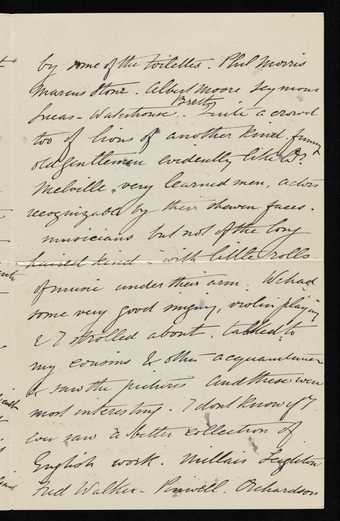 by some of the toilettes - Phil Morris
Marcus Stone. Albert Moore Seymour
Lucas - Waterhouse. Brett Quite a crowd
too of lions of another kind, funny
old gentlemen evidently like Dr.
Melville, very learned men, actors
recognizable by their shaven faces.
musicians but not of the long
haired kind with little rolls
of music under their arm. We had
some very good singing, violin playing
& I strolled about. talked to
my cousins & other acquaintances
& saw the pictures and these were
most interesting. I dont know if I
ever saw a better collection of
English work. Millais Leighton
Fred Walker - Pinwell. Orchardson